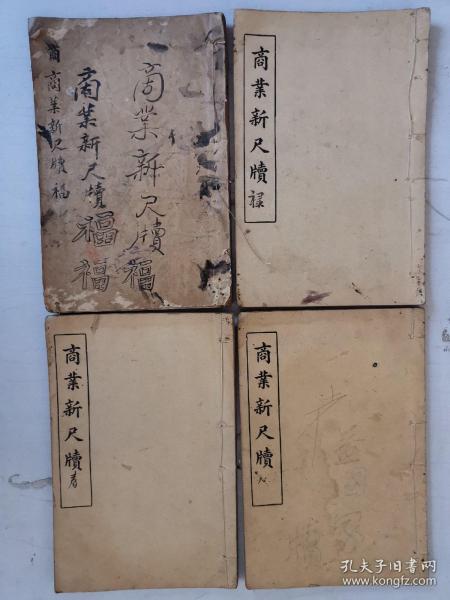 商業新尺牘福
商業新尺牘福福
商業新尺牘福
商業新尺牘祿
商業新尺牘壽
商業新尺牘
孔夫子旧书网
www.kongfz.com